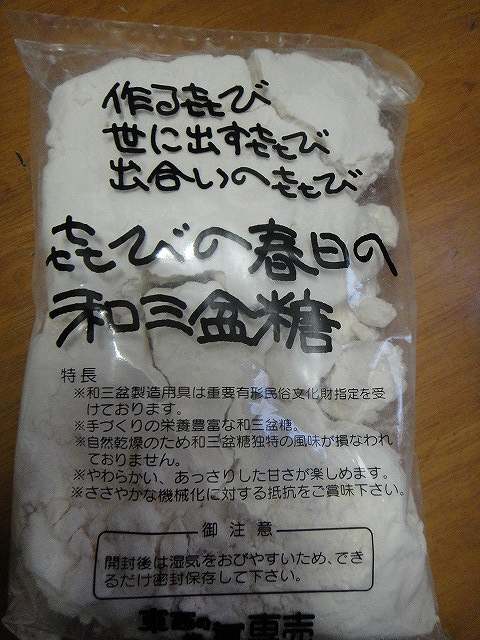 作る㐂び
世に出す㐂び
出合いの㐂び
㐂びの春日の
和三盆糖
特長
※和三盆製造用具は重要有形民俗文化財指定を受
けております。
※手づくりの栄養豊富な和三盆糖。
※自然乾燥のため和三盆糖独特の風味が損なわれ
ておりません。
※やわらかい、あっさりした甘さが楽しめます。
※ささやかな機械化に対する抵抗をご賞味下さい。
御注意
開封後は湿気をおびやすいため、でき
るだけ密封保存して下さい。